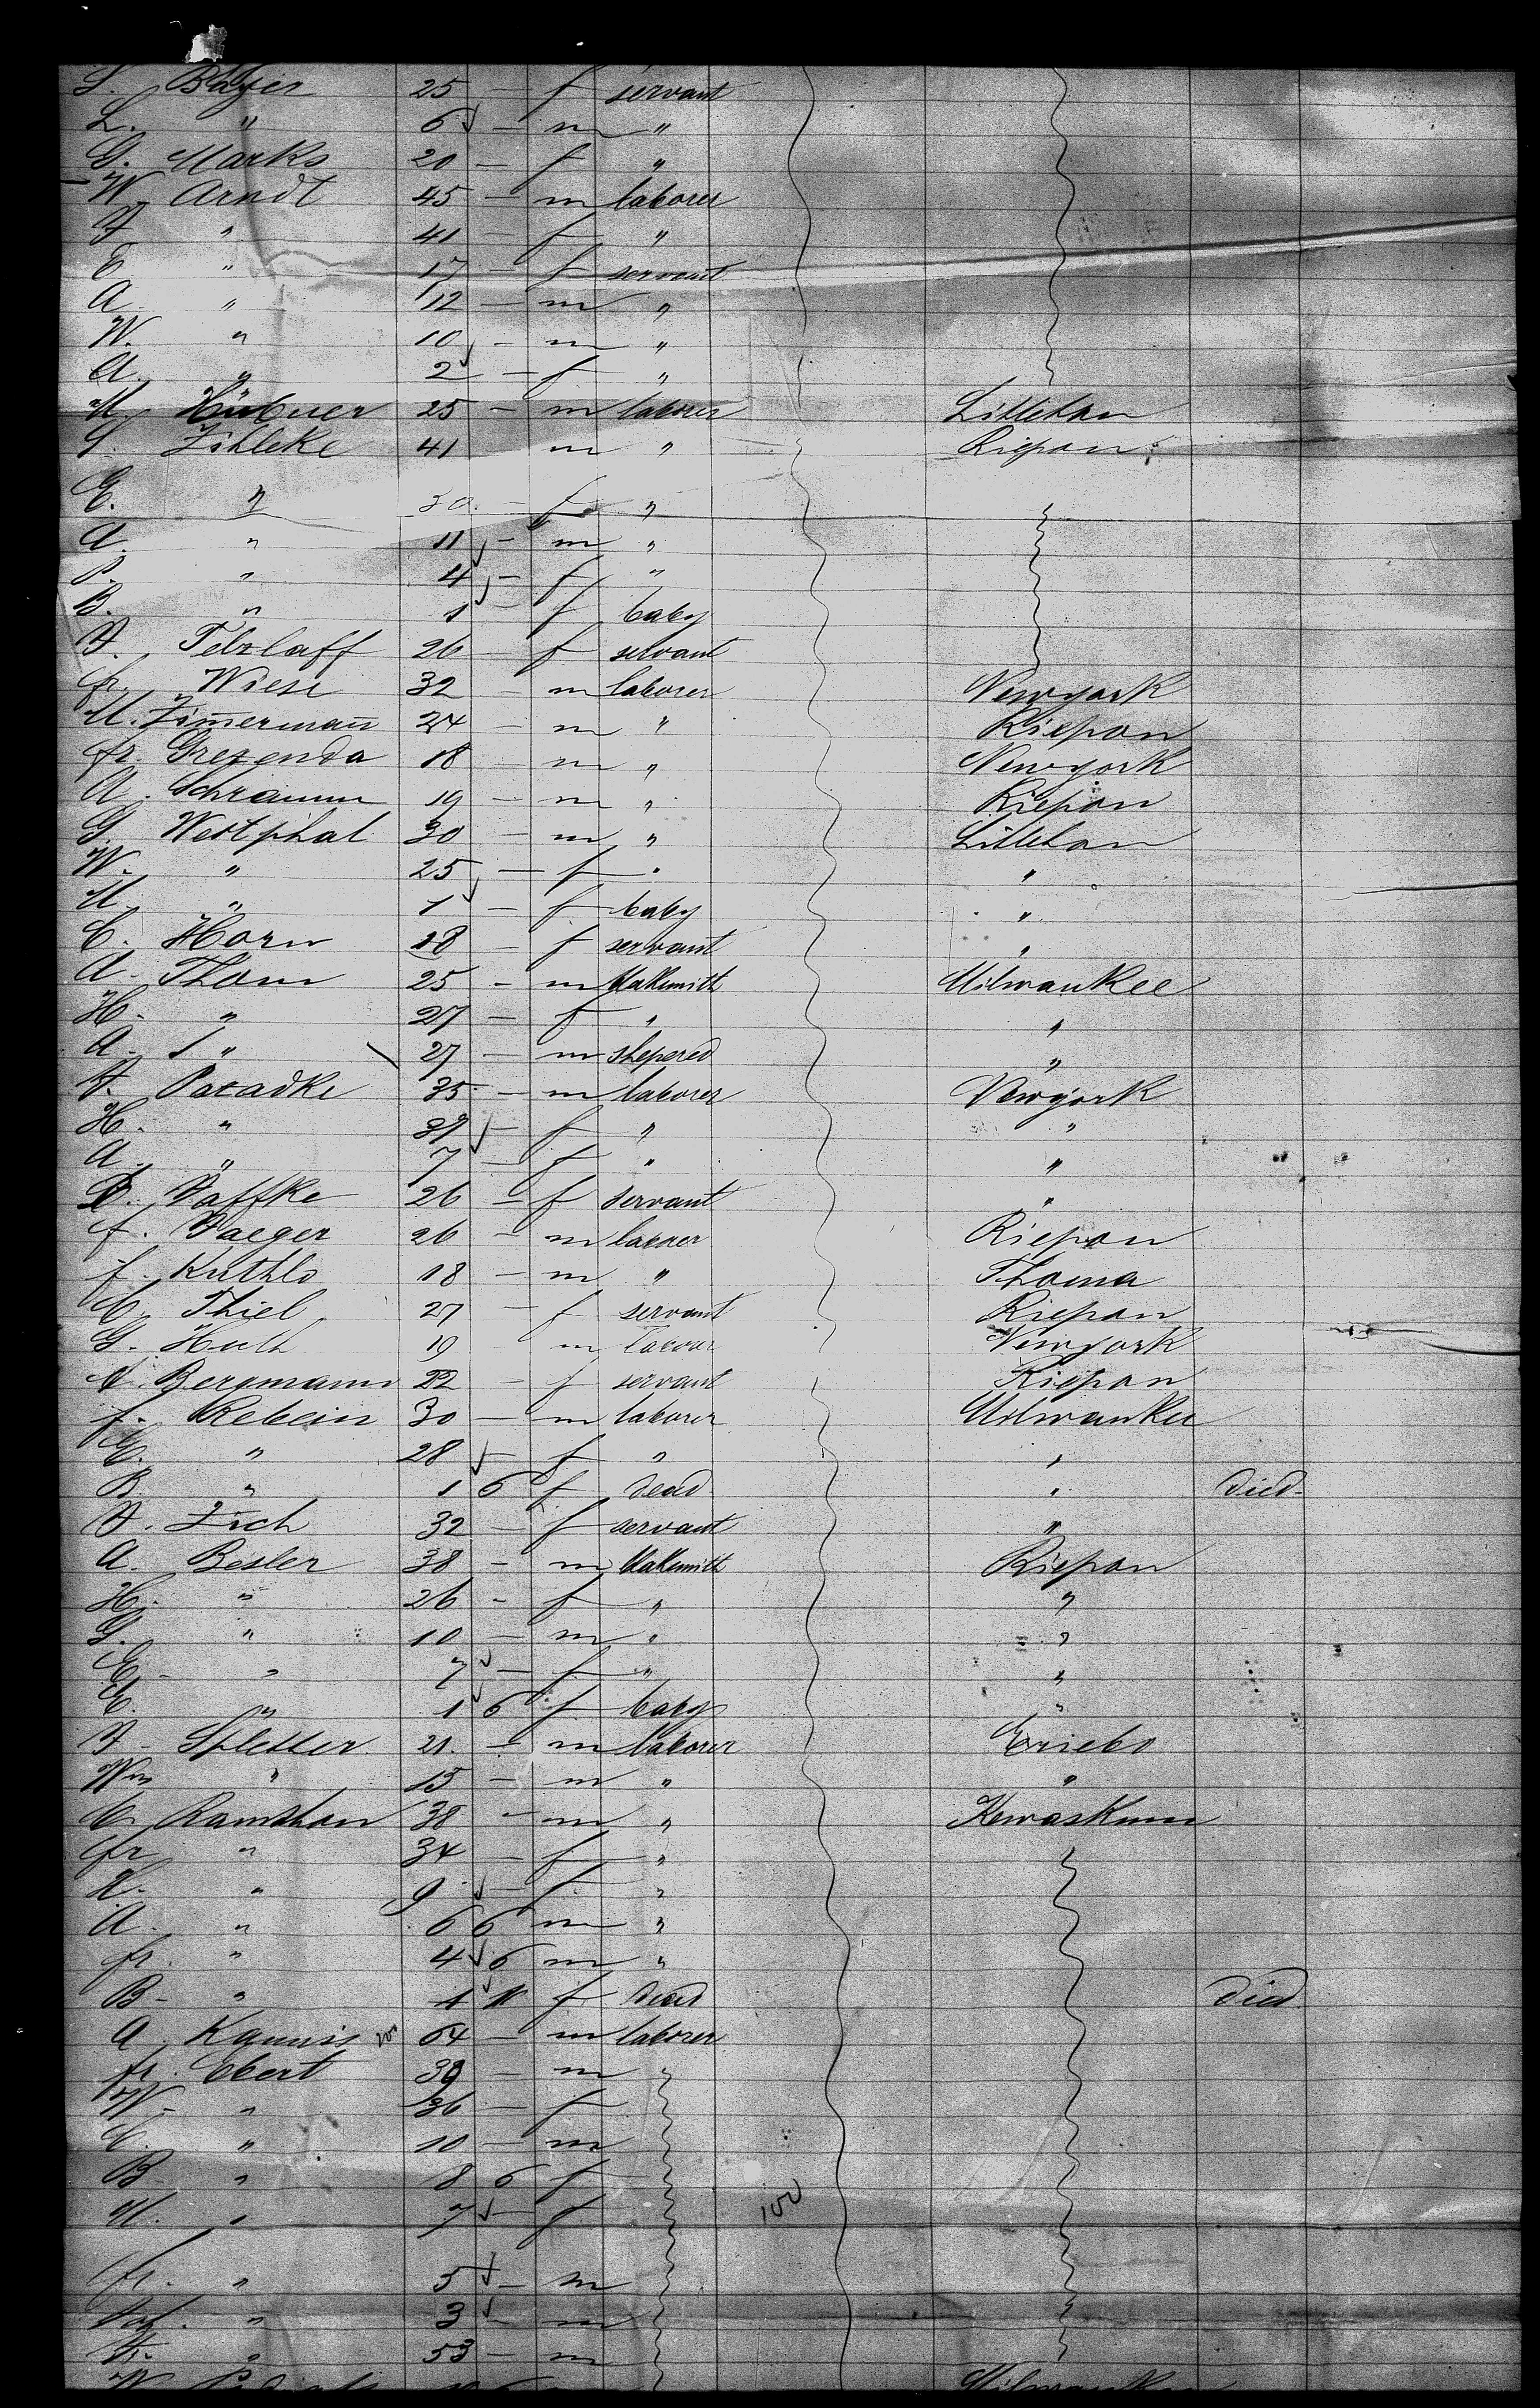 Bayer 25 - f servant
L. " 6 - m "
G. Marks 20 - f "
W. Arndt 45 - m laborer
" 41 - f "
E " 17 - f servant
A " 12 - m "
W. " 10 - m "
A. " 2 - f "
M. Hübner 25 - m laborer Litteban
Zihleke 41 m " Riepon
E. " 30 - f "
A. " 11 - m "
P. " 4 - f "
B. " 1 - f baby
Tetzlaff 26 f servant
fr. Wiese 32 - m laborer Newyork
M. Zimmermann 24 - m " Riepon
fr. Grezenda 18 - m " Newyork
A. Schramm 19 - m " Riepon
G. Westphal 30 - m " Litteban
W. " 25 - f " "
M. " 1 - f baby "
C. Horn 18 - f servant "
A. Thom 25 - m blaksmith Milwaukee
H. " 27 - f " "
A. " 27 - m shepered "
Patadke 35 - m laborer Newyork
H. " - f " "
A. " 7 - f " "
Jaffke 26 - f servant "
f. Jaeger 26 - m laborer Riepon
f. Kuthlo 18 - m " Thoma
C. Thiel 27 - f servant Riepon
G. Huth 19 m laborer Newyork
Bergmann 22 - f servant Riepon
f. Rebein 30 - m laborer Milwaukee
E. " 28 - f " "
B. " 1 6 f dead " died
Zich 32 - f servant "
A. Besler 38 - m blaksmith Riepon
H. " 26 - f " "
G. " 10 - m " "
E. " 7 - f " "
E. " 1 6 f baby "
Spletter 21 - m laborer
Wm " 15 - m " "
C. Ramthon 38 - m " Kewaskum
fr " 34 - f "
H. " 9 - f "
A. " 6 6 m "
fr. " 4 6 m "
B. " 1 11 f dead died
A. 64 - m laborer
fr. Ebert 39 - m "
W. " 36 - f
C. " 10 - m
B. " 8 6 f
M. " 7 - f 100
fr. " 5 - m
" 3 - m
" 53 - m
Milwaukee